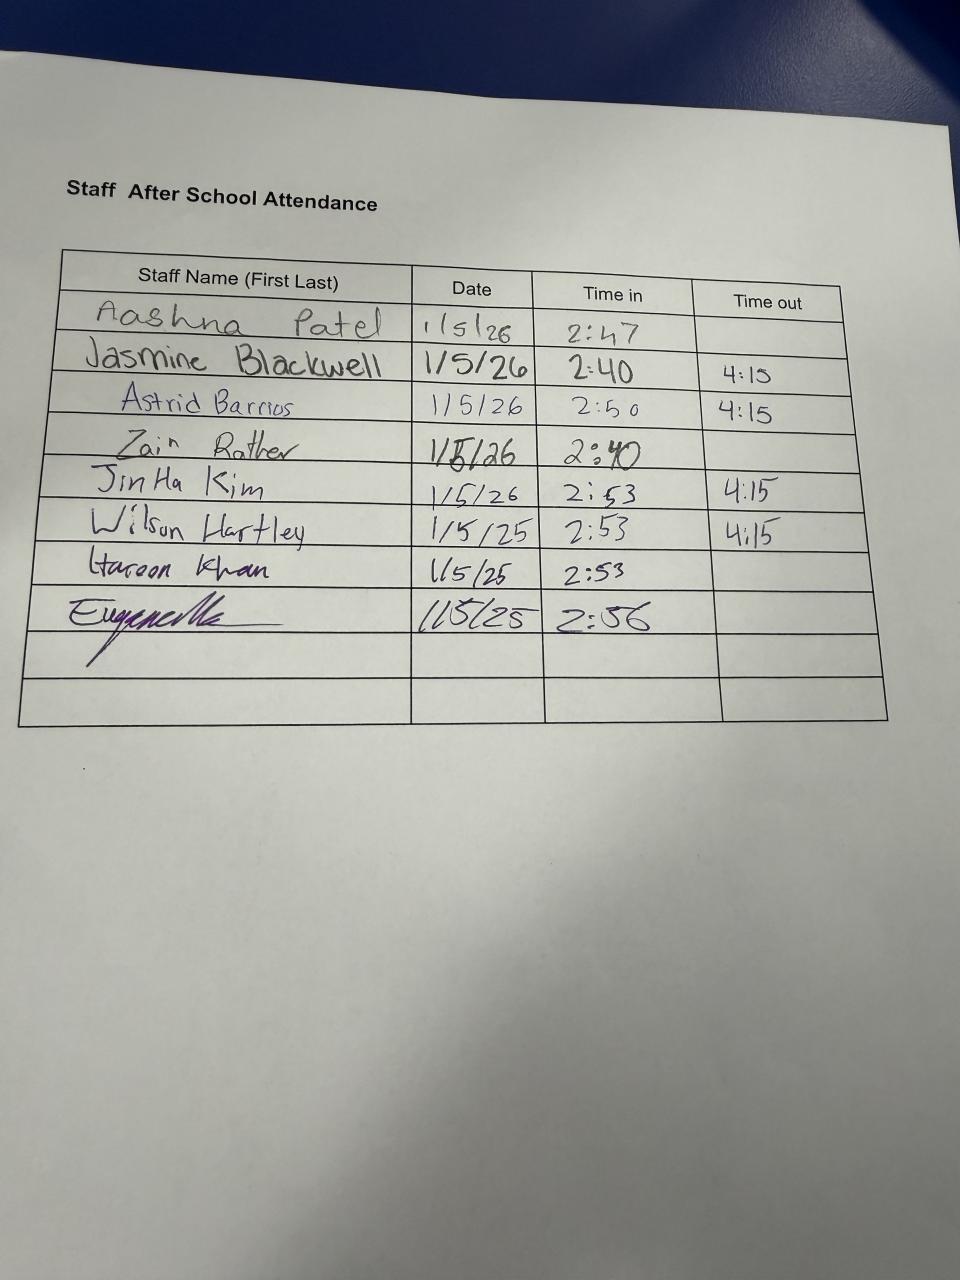 Staff After School Attendance
Staff Name (First Last) Date Time in Time out
Aashna Patel 1/5/26 2:47
Jasmine Blackwell 1/5/26 2:40 4:15
Astrid Barrios 1/5/26 2:50 4:15
Zain Rather 1/5/26 2:40
JinHa Kim 1/5/26 2:53 4:15
Wilson Hartley 1/5/25 2:53 4:15
Haroon Khan 1/5/25 2:53
1/5/25 2:56